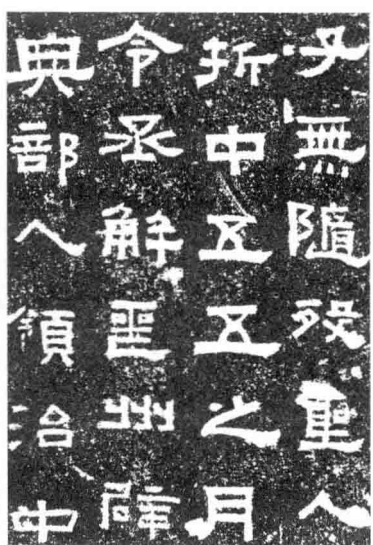 子無隨歿聖人
折中五五之月
令丞解喪州辟
典部入領治中